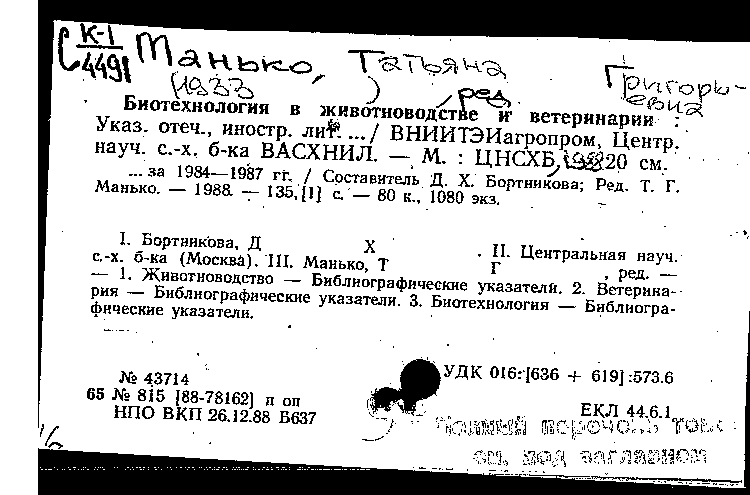 К-1
С 4491
Манько, Татьяна Григорьевна
(1933 ) ред.
Биотехнология в животноводстве и ветеринарии :
Указ. отеч., иностр. лит. .../ ВНИИТЭИагропром, Центр.
науч. с.-х. б-ка ВАСХНИЛ. — М. : ЦНСХБ, 20 см.
... за 1984—1987 гг. / Составитель Д. Х. Бортникова; Ред. Т. Г.
Манько. — 1988. — 135,[1] с. — 80 к., 1080 экз.
I. Бортникова, Д Х . II. Центральная науч.
с.-х. б-ка (Москва). III. Манько, Т Г , ред. —
— 1. Животноводство — Библиографические указатели. 2. Ветерина-
рия — Библиографические указатели. 3. Биотехнология — Библиогра-
фические указатели.
№ 43714
65 № 815 [88-78162] п оп
НПО ВКП 26.12.88 Б637
УДК 016:[636 + 619]:573.6
ЕКЛ 44.6.1
Полный перечень
см. под заглавием
16